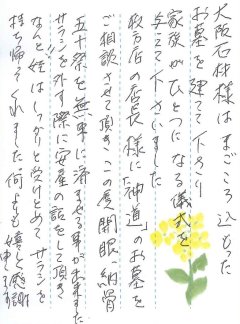 大阪石材はまごころ込もった
お墓を建てて下さり
家族がひとつになる儀式を
与えて下さいました
店の店長様に「神道」のお墓を
ご相談させて頂き、この度開眼、納骨
五十祭を無事に済ませる事が出来ました
サランを外す際に安産の話をして頂き
なんと姪はしっかりと受けとめて サランを
持ち帰ってくれました 何よりも嬉しく感謝
申し